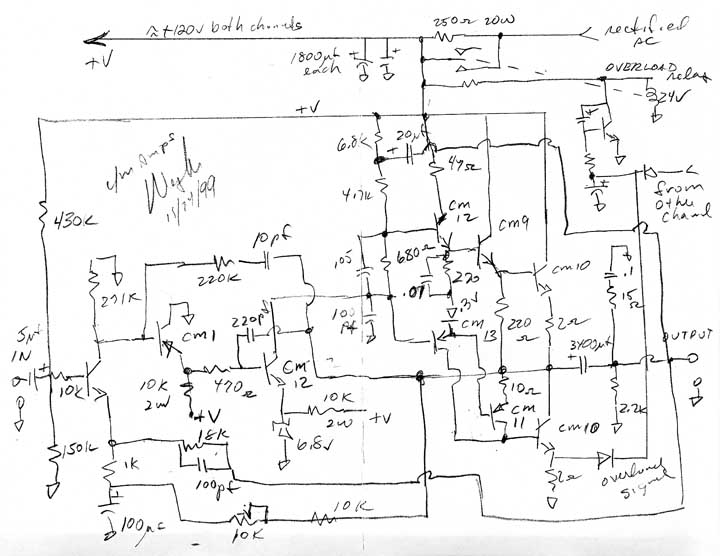 ≈ +120V both channels
+V
1800µf each
250Ω 20W
rectified AC
OVERLOAD
relay
24V
+V
6.8K
20µf
47Ω
c/m Amps
11/24/99
430K
4.7K
CM 12
CM9
from other channel
10pf
220K
.05
680Ω
.01
220
.3V
CM 13
CM10
.1
15Ω
2.21K
CM1
220pf
100 pf
220 Ω
2Ω
3400µf
OUTPUT
5µf IN
10K
10K 2W
470Ω
CM 12
10Ω
CM 11
CM10
2.2K
+V
10K 2W
+V
6.8V
150K
18K
100pf
1K
2Ω
overload signal
100µc
10K
10K